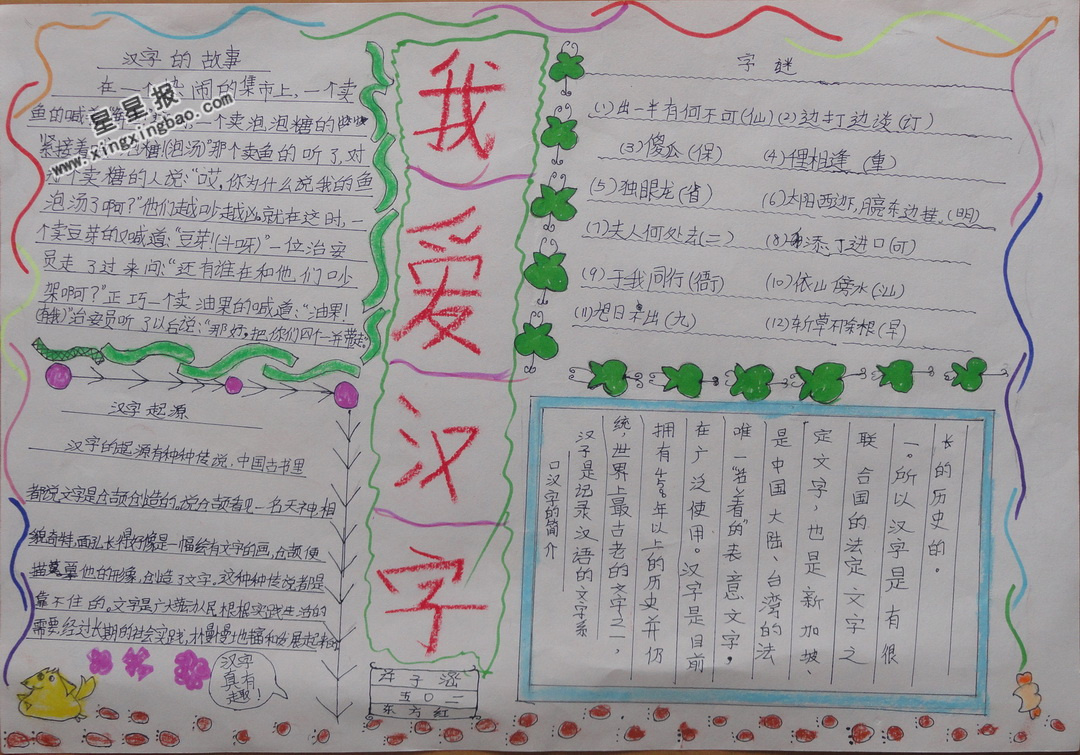 汉字的故事
在一个 闹的集市上，一个卖
鱼的喊道 一个卖泡泡糖的
紧接着 泡糖!(泡汤)"那个卖鱼的听了，对
个卖糖的人说："哎，你为什么说我的鱼
泡汤了啊？"他们越吵越凶就在这时，一
个卖豆芽的又喊道："豆芽!(斗呀)"一位治安
员走了过来问："还有谁在和他们吵
架啊？"正巧一个卖油果的喊道："油果!
治安员听了以后说："那好，把你们四个一并带走
星星报
www.xingxingbao.com
汉字起源
汉字的起源有种种传说，中国古书里
都说文字是仓颉创造的。说仓颉看见一名天神，相
貌奇特，面孔长得好像是一幅绘有文字的画，仓颉便
描摹他的形像，创造了文字。这种种传说都是
靠不住的。文字是广大劳动人民根根实践生活的
需要，经过长期的社会实践，才慢慢地 和发展起来的
汉字
真有
趣！
我
爱
汉
字
子涵
五〇二
东方红
字谜
(1)出一半有何不可(仙) (2)边打边谈(订)
(3)傻瓜(保) (4)裡相逢(重)
(5)独眼龙(省) (6)太阳西边下，月亮东边挂。(明)
(7)夫人何处去(二) (8) 添丁进口(可)
(9)于我同行(衙) (10)依山傍水(汕)
(11)旭日 出(九) (12)斩草不除根(早)
口汉字的简介
汉子是记录汉语的文字系
统，世界上最古老的文字之一，
拥有45百年以上的历史并仍
在广泛使用。汉字是目前
唯一"沿着的"表意文字，
是中国大陆、台湾的法
定文字，也是新加坡、
联合国的法定文字之
一。所以汉字是有很
长的历史的。